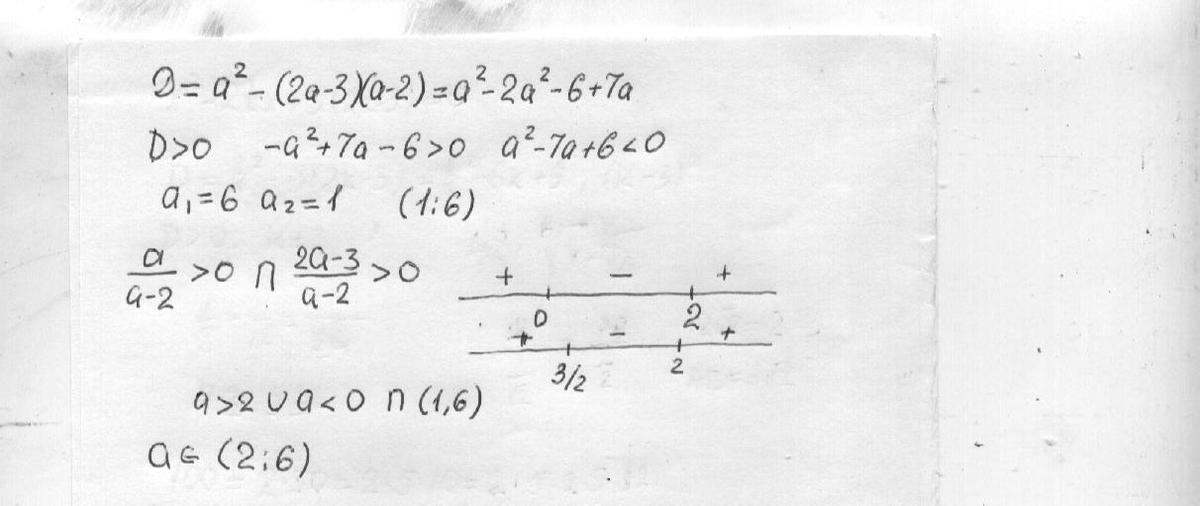 D = a² - (2a-3)(a-2) = a² - 2a² - 6 + 7a
D>0 -a²+7a-6>0 a²-7a+6<0
a₁=6 a₂=1 (1;6)
a/(a-2) >0 ∩ (2a-3)/(a-2) >0
+ - +
0 2
+ - +
3/2 2
a>2 ∪ a<0 ∩ (1,6)
a ∈ (2;6)